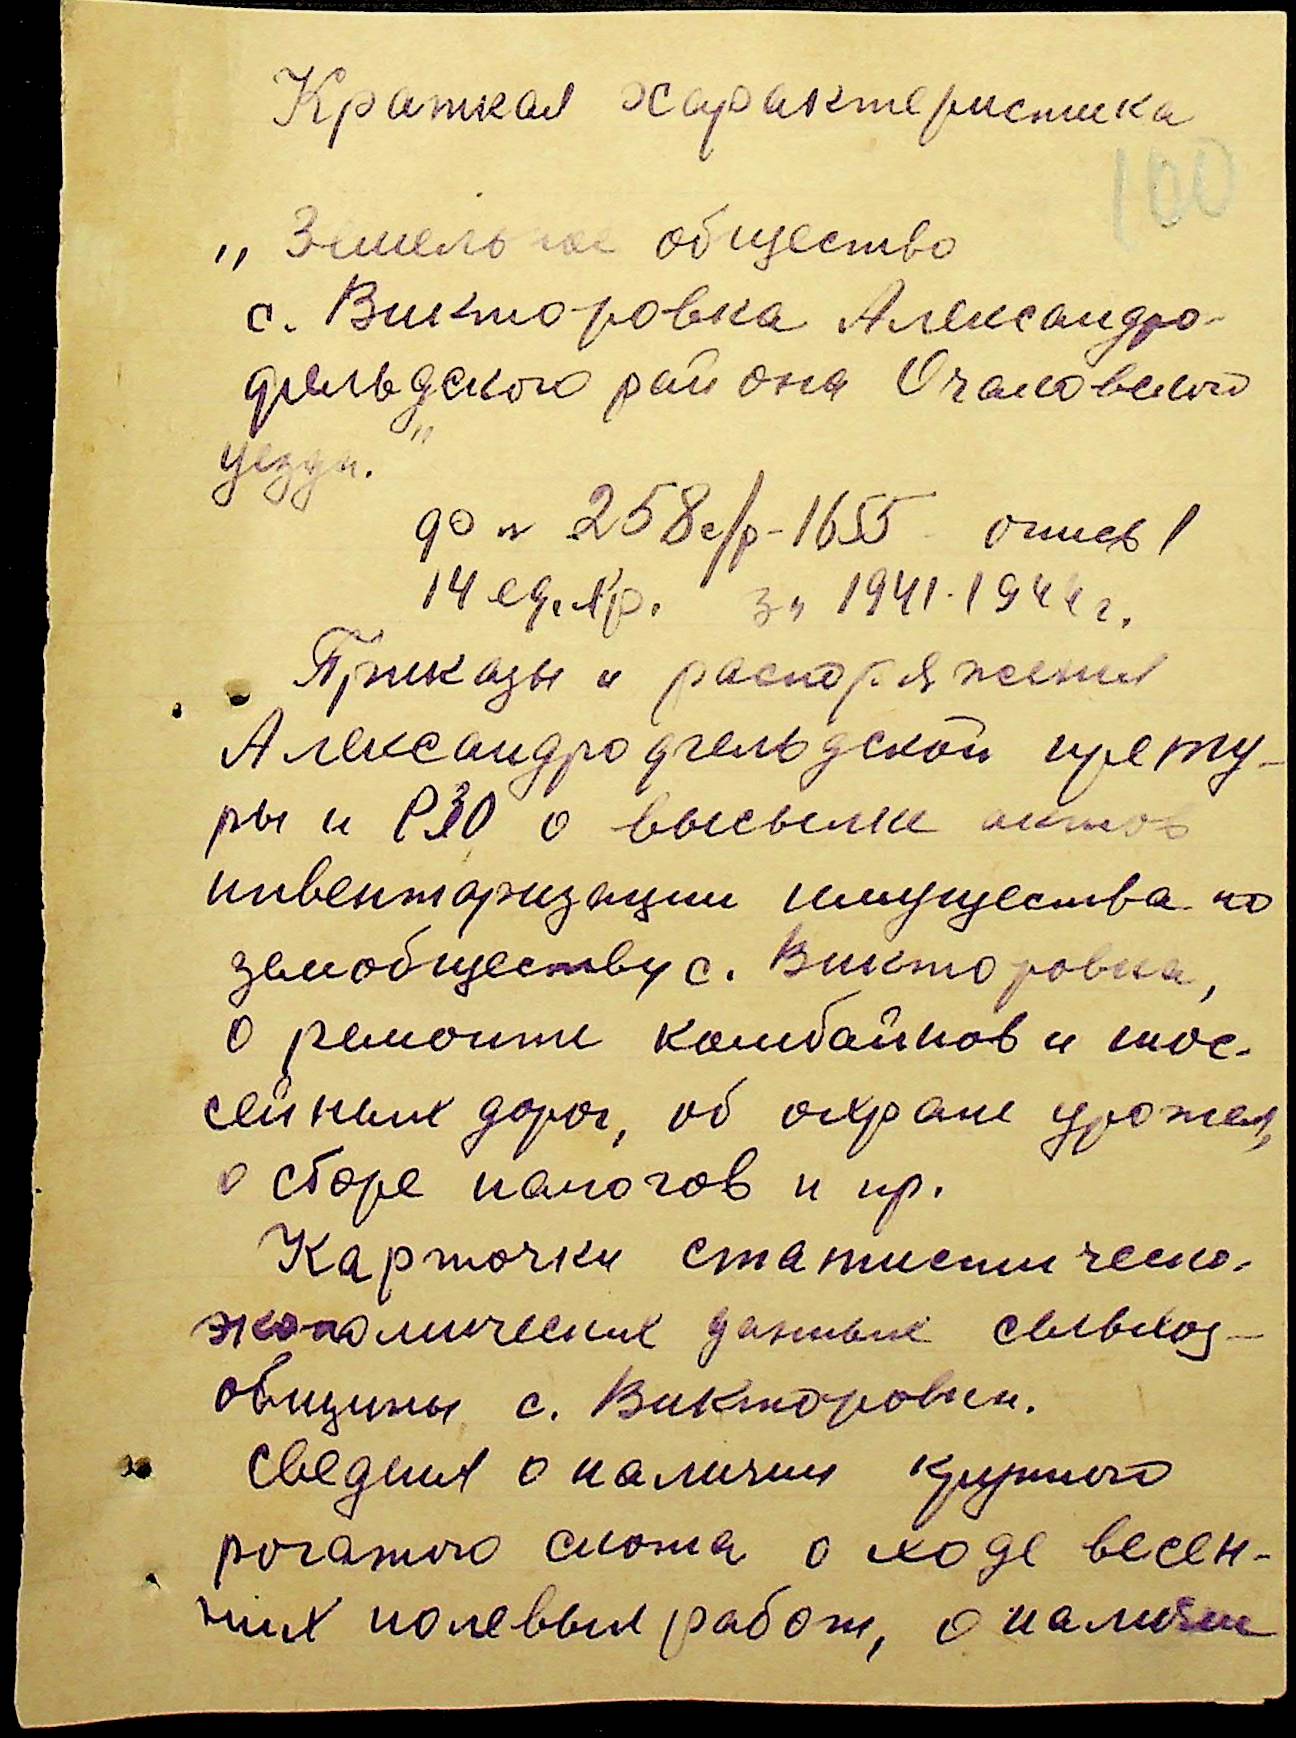 Краткая характеристика
100
„Земельное общество
с. Викторовка Александро-
фельдского района Очаковского
уезда."
до н 258 с/р-1655 опись 1
14 ед. хр. за 1941-1944 г.
Приказы и распоряжения
Александрофельдской прету-
ры и РЗО о высылке актов
инвентаризации имущества по
земобществу с. Викторовка,
о ремонте комбайнов и шос-
сейных дорог, об охране урожая,
о сборе налогов и пр.
Карточки статистическо-
экономических данных сельхоз-
общины с. Викторовки.
Сведния о наличии крупного
рогатого скота о ходе весен-
них полевых работ, о наличии